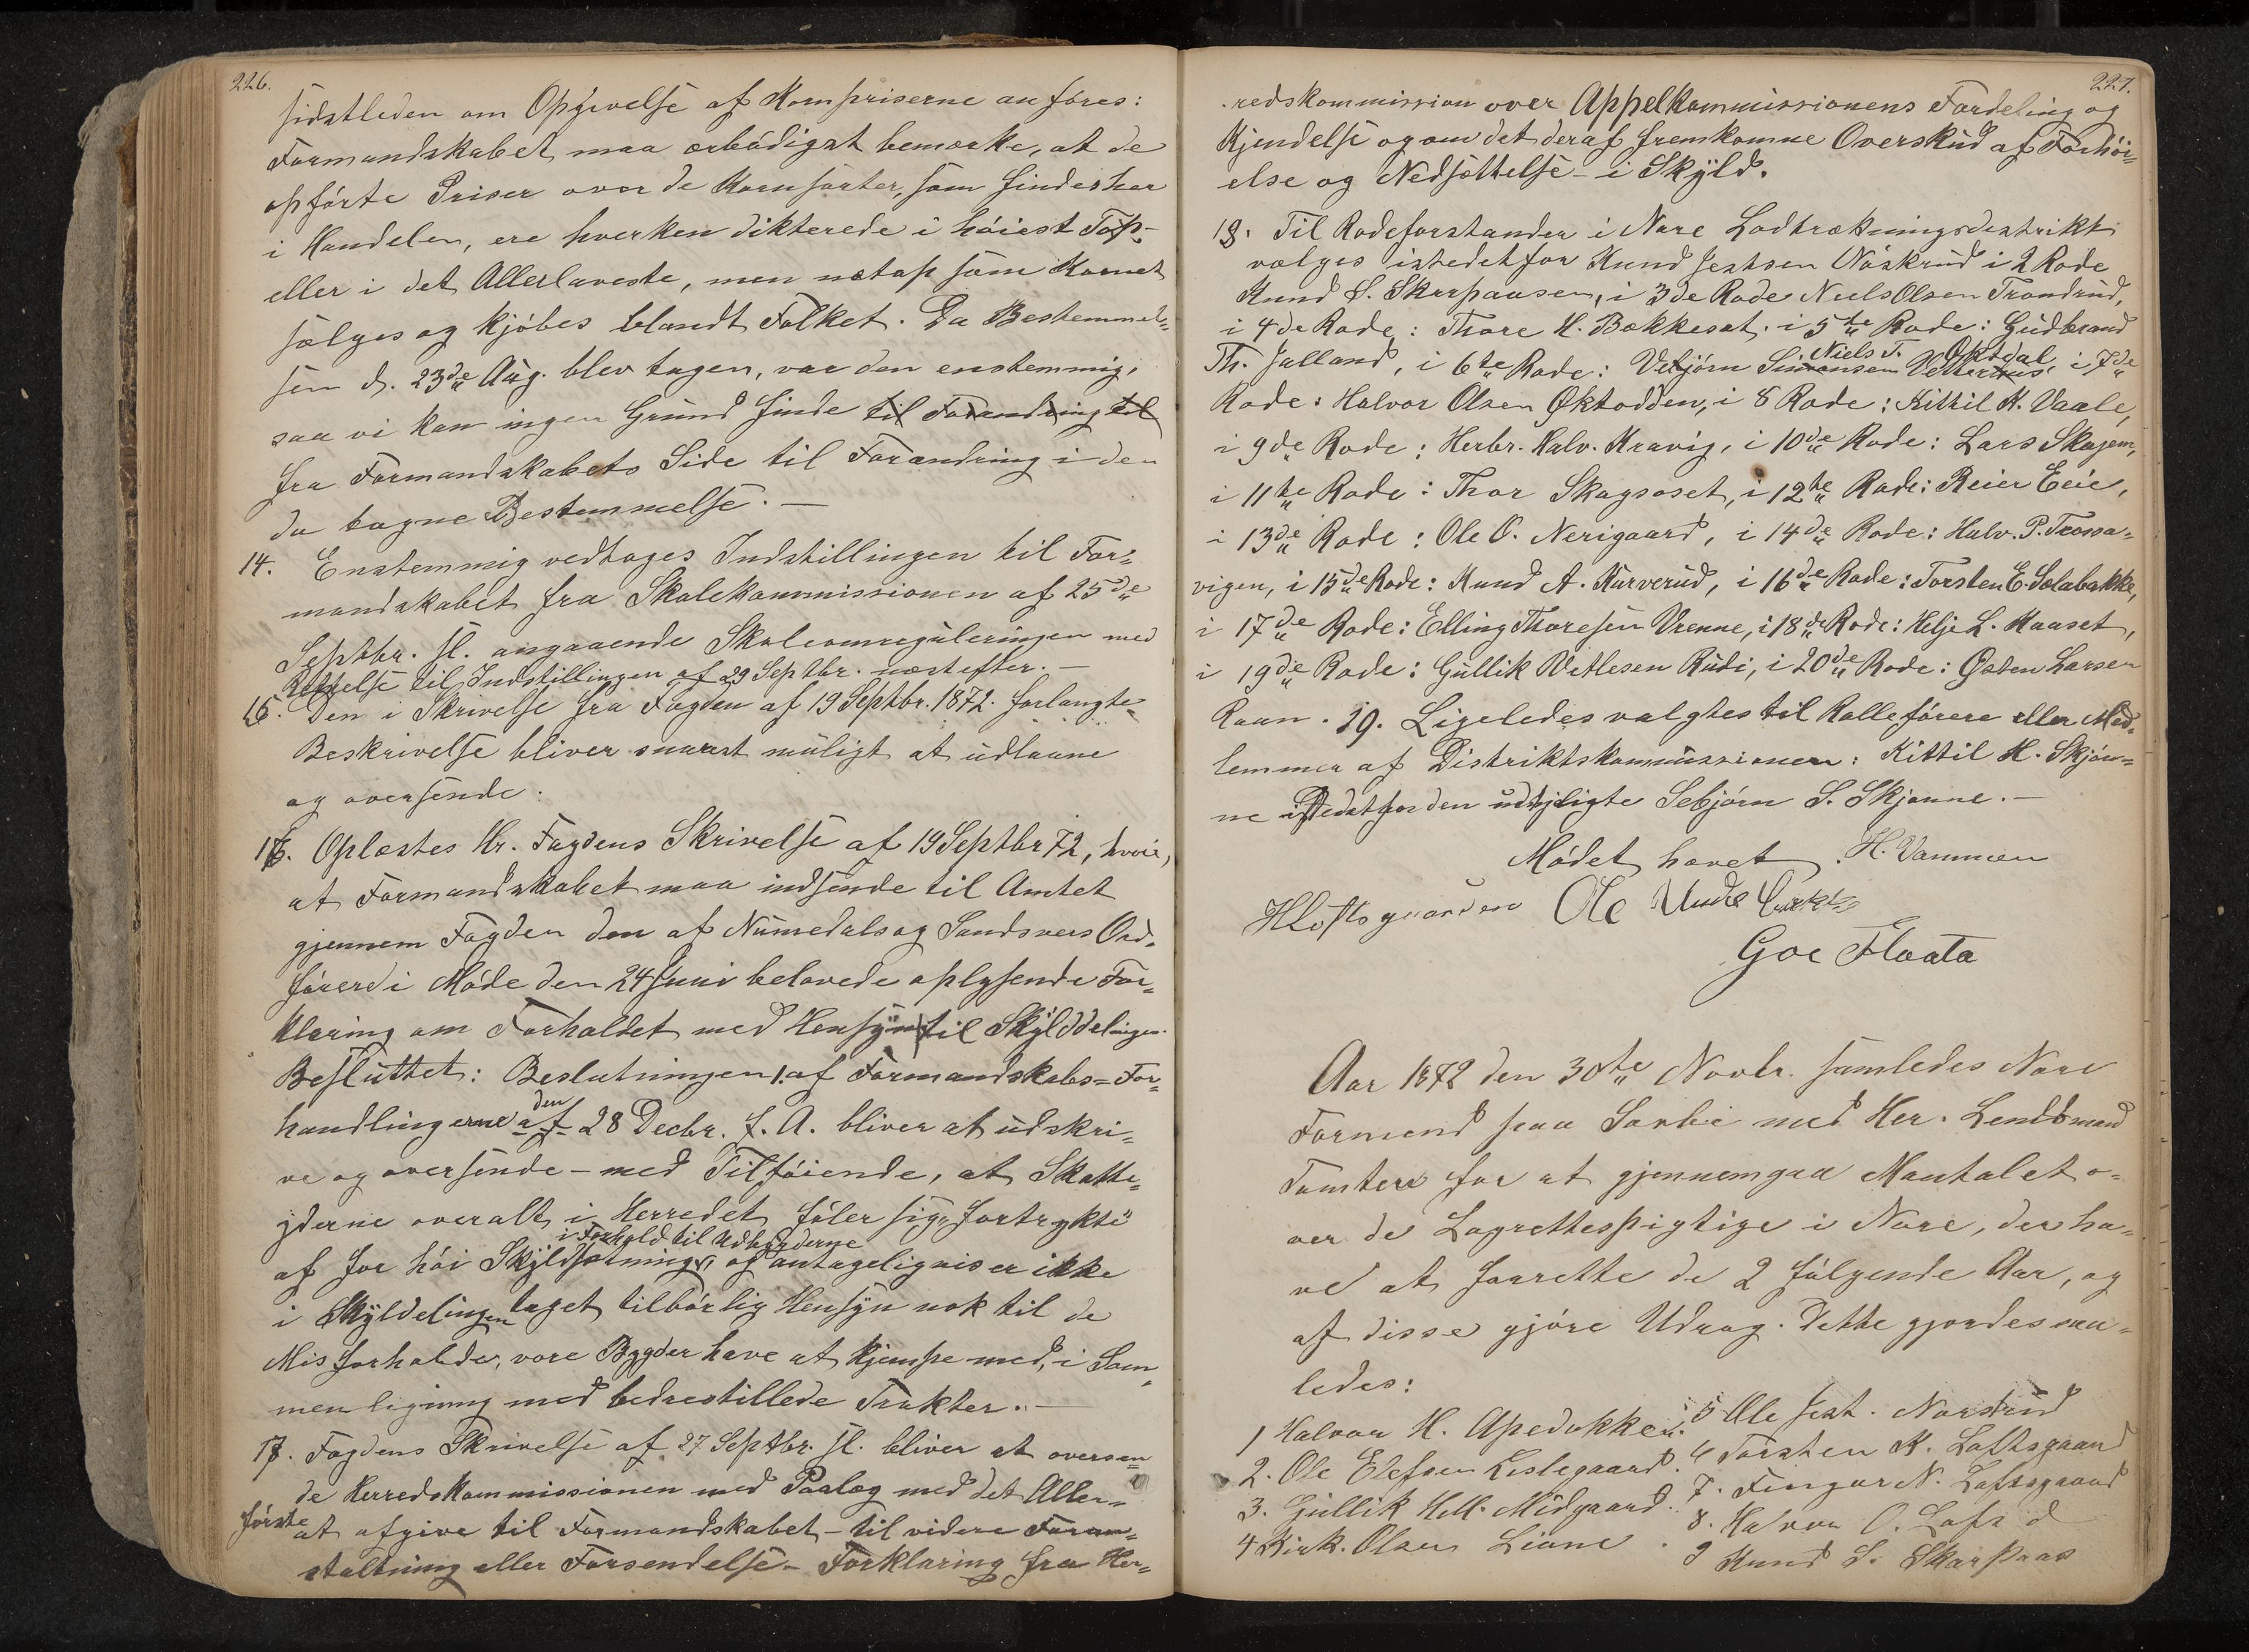 226.
sidstleden om Opgivelse af Kornpriserne anføres:
Formandskabet maa ærbødigst bemærke, at de
opførte Priser over de Kornsorter, som findes her
i Handelen, ere hverken dikterede i høiest Top-
eller i det Allerlaveste, men netop som Kornet
sælges og kjøbes blandt Folket. Da Bestemmel-
sen d. 23de Aug. blev tagen, var den enstemmig,
saa vi kan ingen Grund finde til Forandring til
fra Formandskabets Side til Forandring i den
da tagne Bestemmelse. —
14. Enstemmig vedtages Indstillingen til For-
mandskabet fra Skolekommissionen af 25de
Septbr. sl. angaaende Skoleomreguleringen med
Rettelse til Indstillingen af 29 Septbr. næstefter. —
15. Den i Skrivelse fra Fogden af 19 Septbr. 1872. forlangte
Beskrivelse bliver snarest muligt at udlaane
og oversende.
16. Oplæstes Hr. Fogdens Skrivelse af 19 Septbr 72, hvori,
at Formandskabet maa indsende til Amtet
gjennem Fogden den af Numedals og Sandsvers Ord-
fører i Møde den 24 Juni belovede oplysende For-
klaring om Forholdet med Hensyn til Skylddelingen.
Besluttet: Beslutningen 1. af Formandskabs-For-
handlingerne af den 28 Decbr. f. A. bliver at udskri-
ve og oversende – med Tilføiende, at Skatte-
yderne overalt i Herredet føler sig fortrykte
af for høi Skyldsætning, i Forhold til Udbygderne og antageligvis er ikke
i Skyldelingen taget tilbørlig Hensyn nok til de
Misforholde, vore Bygder have at kjempe med, i Sam-
menligning med bedrestillede Trakter. —
17. Fogdens Skrivelse af 27 Septbr. sl. bliver at oversen-
de Herredskommissionen med Paalæg med det Aller-
første at afgive til Formandskabet – til videre Foran-
staltning eller Forsendelse – Forklaring fra Her-
227.
redskommission over Appelkommissionens Fordeling og
Kjendelse og om det deraf fremkomne Overskud af Forhøi-
else og Nedsættelse – i Skyld.
18. Til Rodeforstander i Nore Lodtrækningsdistrikt
vælges istedetfor Knud Jestsen Nøskrud i 2 Rode
Knud S. Skarpaasen, i 3de Rode Niels Olsen Trondrud,
i 4de Rode: Thore H. Bækkesæt. i 5te Rode: Gudbrand
Th. Juland, i 6te Rode: Vebjørn Simensen Vetterhus, Niels T. Økkdal i 7de
Rode: Halvor Olsen Øktodden, i 8 Rode: Kittil K. Vaale,
i 9de Rode: Herbr. Halv. Kravig, i 10de Rode: Lars Skajem,
i 11te Rode: Thor Skagsoset, i 12te Rode: Reier Eeie,
i 13de Rode: Ole O. Nerigaard, i 14de Rode: Halv. P. Trossa-
vigen, i 15de Rode: Knud A. Kurverud, i 16de Rode: Torsten E. Solabakke,
i 17de Rode: Elling Thoresen Vrenne, i 18de Rode: Helje L. Kaaset,
i 19de Rode: Gullik Vetlesen Rudi, i 20de Rode: Østen Larsen
Raan. 19. Ligeledes valgtes til Rolleførere eller Med-
lemmer af Distriktskommissionen: Kittil H. Skjøn-
ne istedetfor den udflyttede Sebjørn S. Skjønne. —
Mødet hævet. H. Vammen
HLoftsgaarden Ole
Goe Flaata
Aar 1872 den 30te Novbr. samledes Nore
Formend paa Sørbøe med Her. Lendsmand
Tomtere for at gjennemgaa Mantalet o-
ver de Lagrettespigtige i Nore, der ha-
ve at forrette de 2 følgende Aar, og
af disse gjøre Udrag. Dette gjordes saa-
ledes:
1 Halvor H. Apedokken.
2. Ole Elefsen Lislegaard.
3. Gullik Hell. Midgaard.
4 Kirk. Olsen Liane.
5 Ole Jest. Norstrud
6 Torsten K. Loftsgaard
7. Fingar N. Loftsgaard
8. Halvor O. Lofsd
9 Knud S. Skarpaas